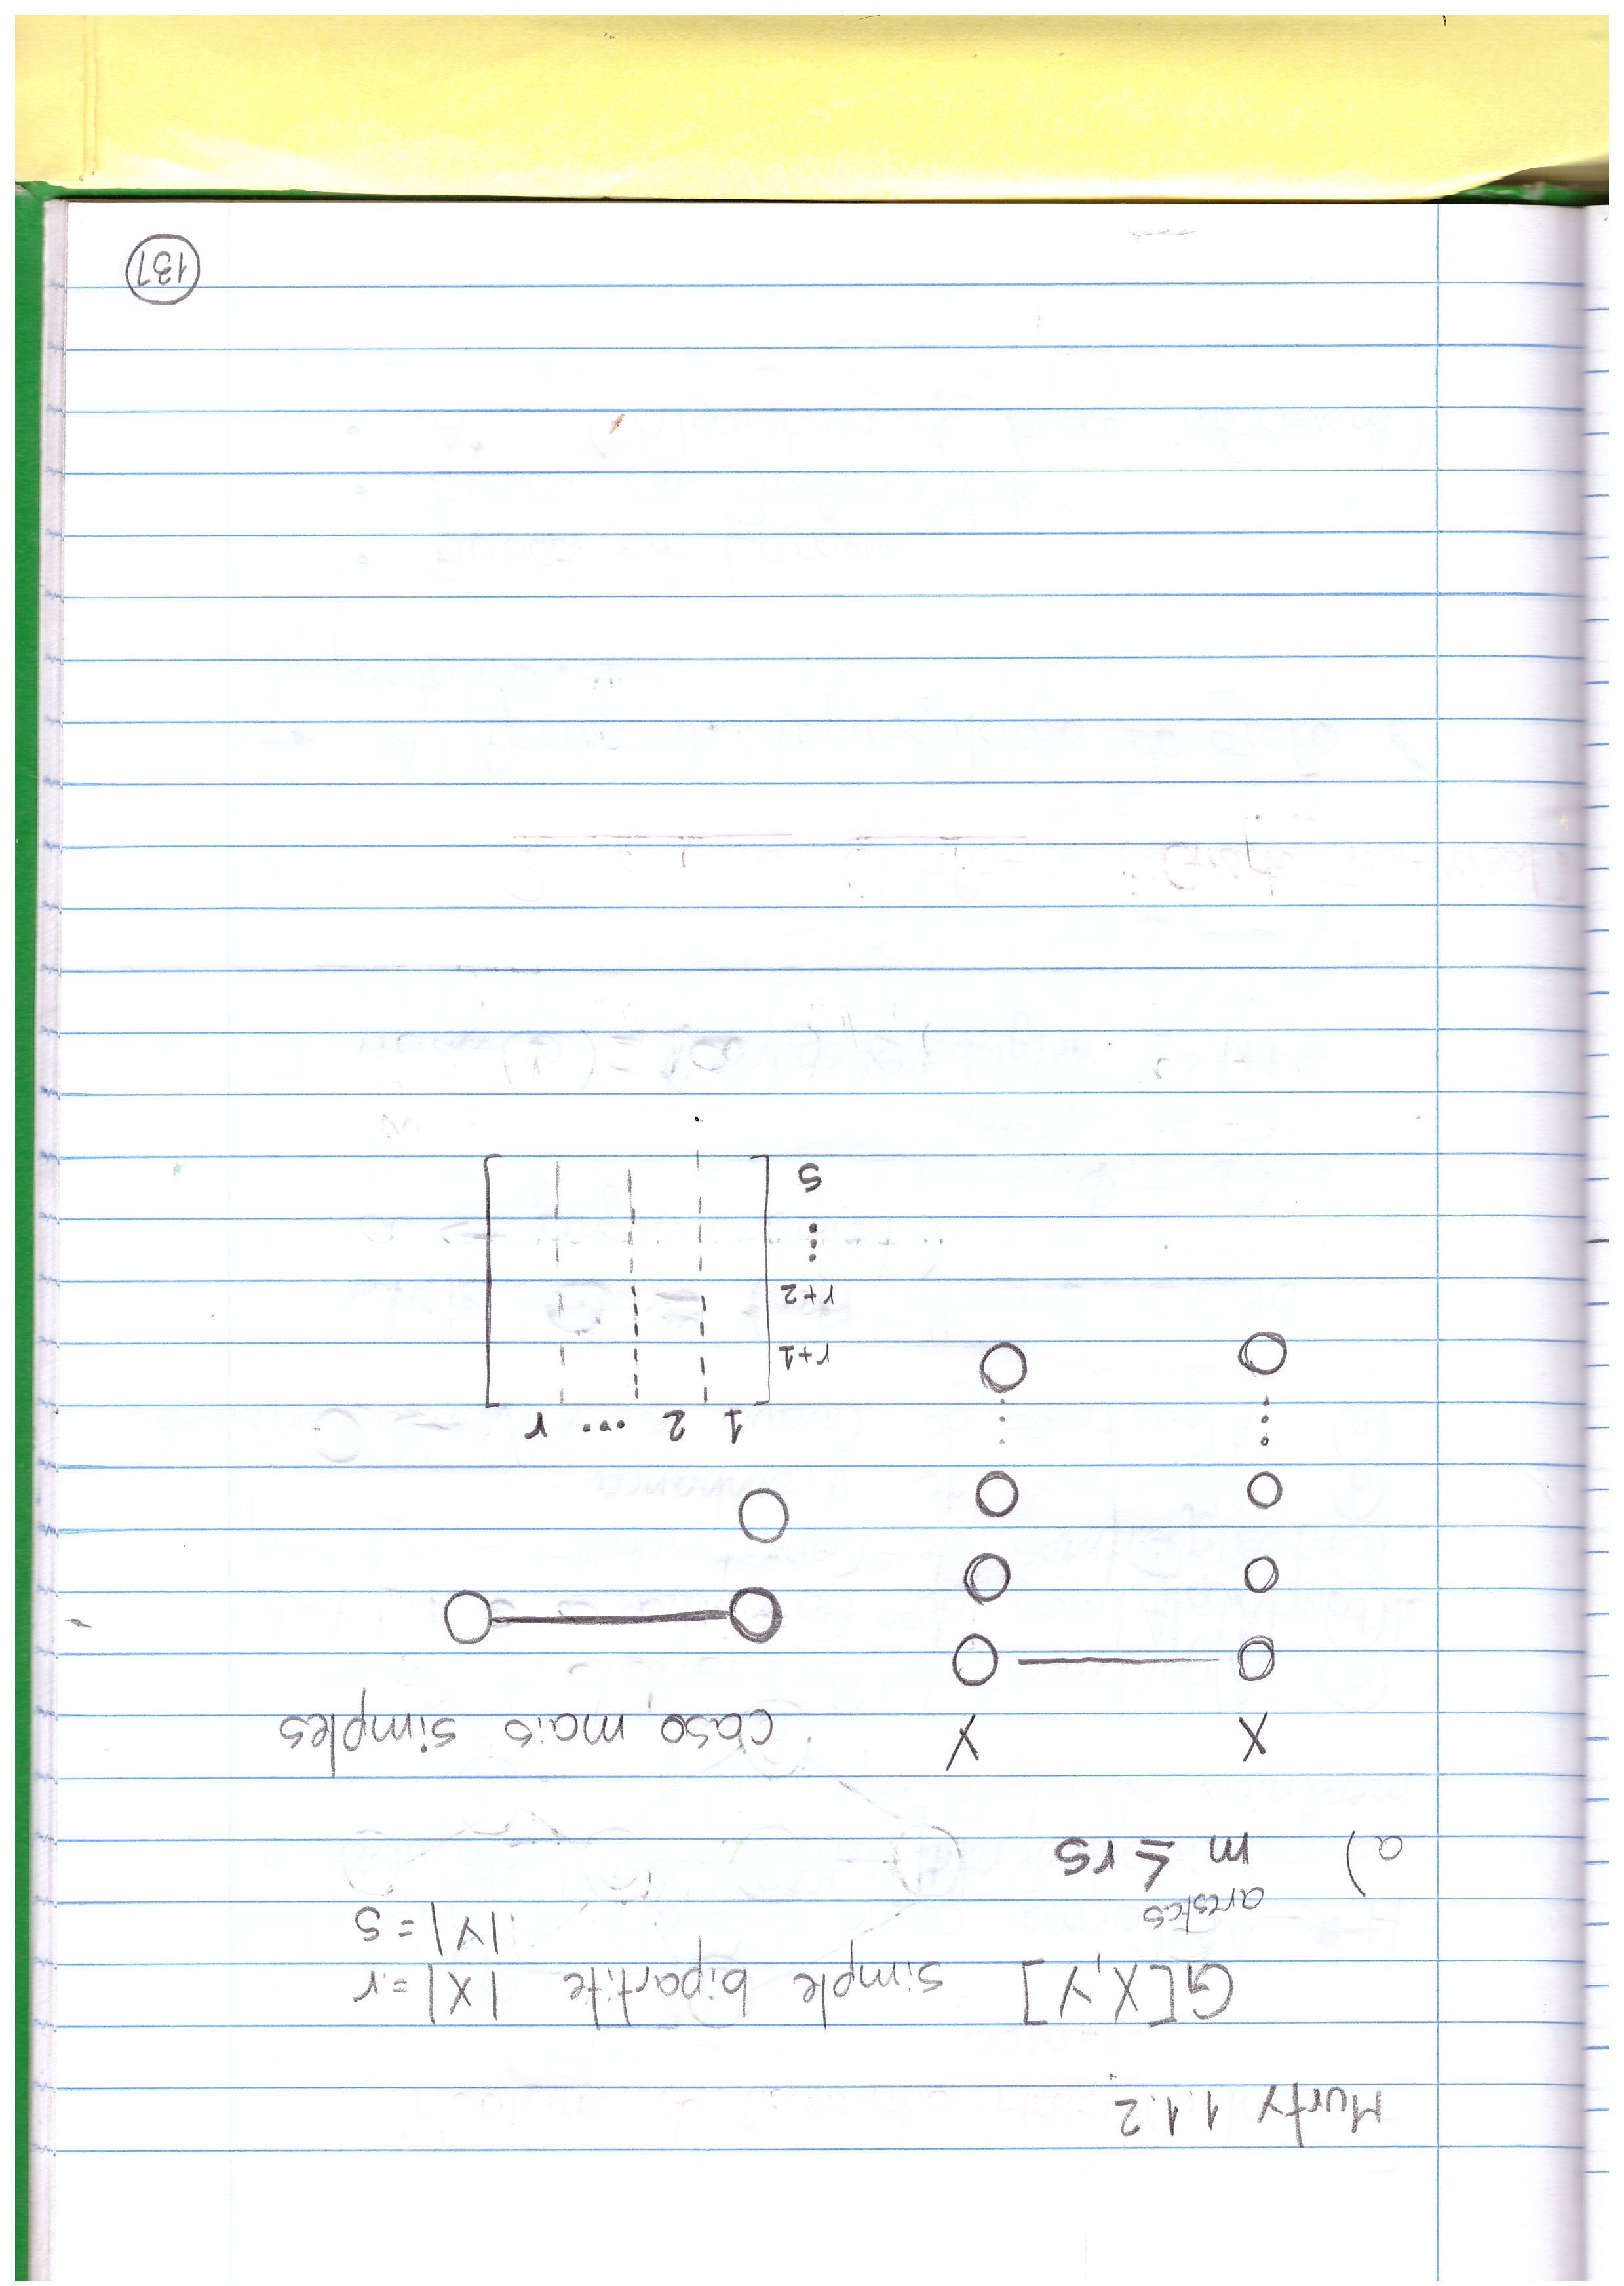 Murty 1.1.2
G[X,Y] simple bipartite |X| = r
|Y| = s
arestas
a) m ≤ rs
X Y caso mais simples
1 2 ... r
r+1
r+2
⋮
s
137